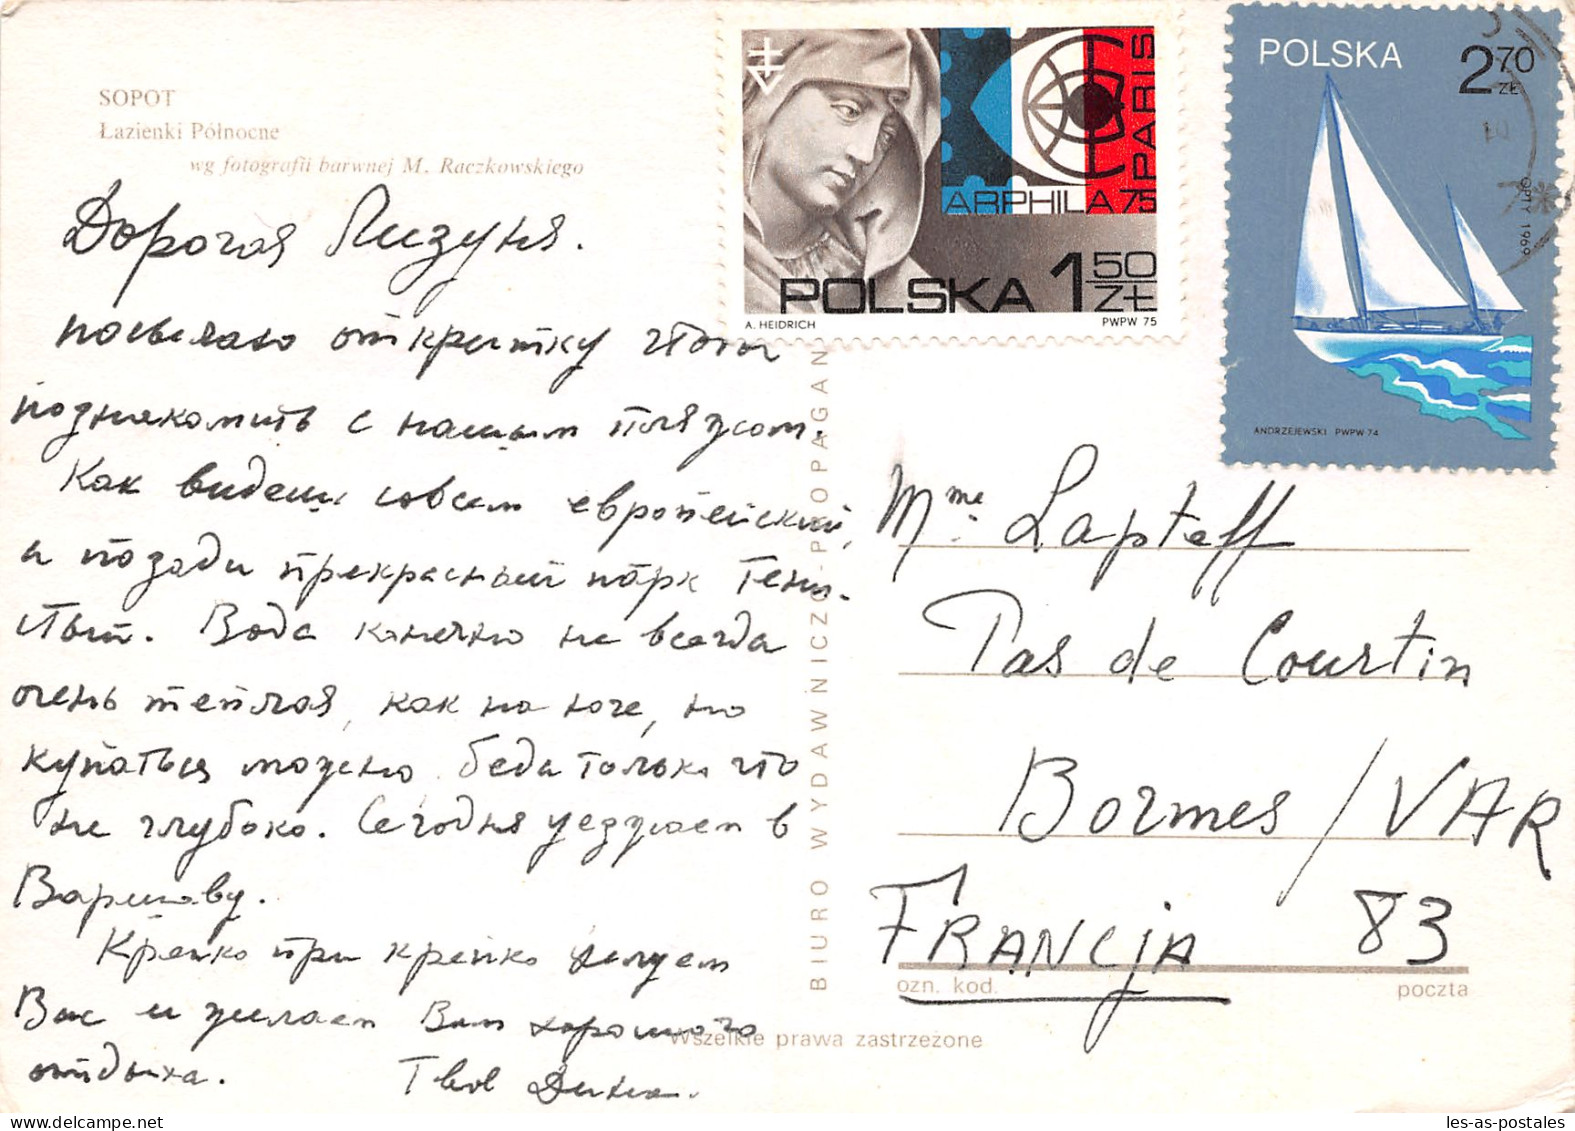 SOPOT
Łazienki Północne
wg fotografii barwnej M. Raczkowskiego
Дорогая Лизуня.
посылаю открытку чтобы
познакомить с нашим пляжом.
Как видешь совсем европейский,
а позади прекрасный парк тени-
стый. Вода конечно не всегда
очень теплая, как на юге, но
купаться можно. беда только что
не глубоко. Сегодня уезжаем в
Варшаву.
Крепко при крепко целуем
Вас и желаем Вам хорошего
отдыха. Твоя
POLSKA 1 50 ZŁ
ARPHILA 75 PARIS
A. HEIDRICH PWPW 75
POLSKA 2 70 ZŁ
OPTY 1969
ANDRZEJEWSKI PWPW-74
BIURO WYDAWNICZO-PROPAGAN
Mme Lapteff
Pas de Courtin
Bormes / VAR
FRANCJA 83
ozn. kod. poczta
Wszelkie prawa zastrzeżone
les-as-postales